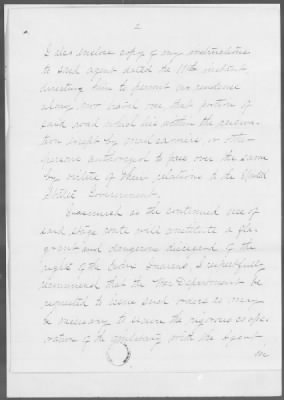 2
I also enclose copy of my instructions
to said agent dated the 11th instant,
directing him to permit no residence
along, nor travel over, that portion of
said road which lies within the reserva-
tion except by mail carriers, or other
persons authorized to pass over the same
by virtue of their relations to the United
States Government.
Inasmuch as the continued use of
said stage route will constitute a fla-
grant and dangerous disregard of the
rights of the Indians, I respectfully
recommend that the War Department be
requested to issue such orders as may
be necessary to insure the vigorous co ope-
ration of the military with the Agent
in